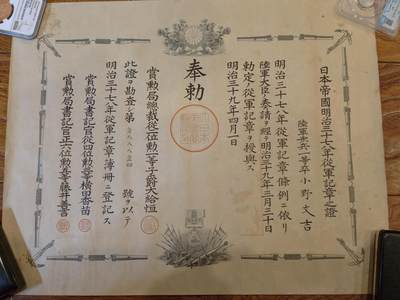 日本帝國明治三十七八年從軍記章之證
陸軍歩兵一等卒小野文吉
明治三十七八年從軍記章條例ニ依リ
陸軍大臣ノ奏請ヲ經テ明治三十九年三月三十日
勅定ノ從軍記章ヲ授與ス
明治三十九年四月一日
奉勅
賞勲局總裁從二位勲一等子爵大給恒
此證ヲ勘査シ第
號ヲ以テ
明治三十七八年從軍記章簿冊ニ登記ス
賞勲局書記官從四位勲三等横田香苗
賞勲局書記官正六位勲五等藤井善言